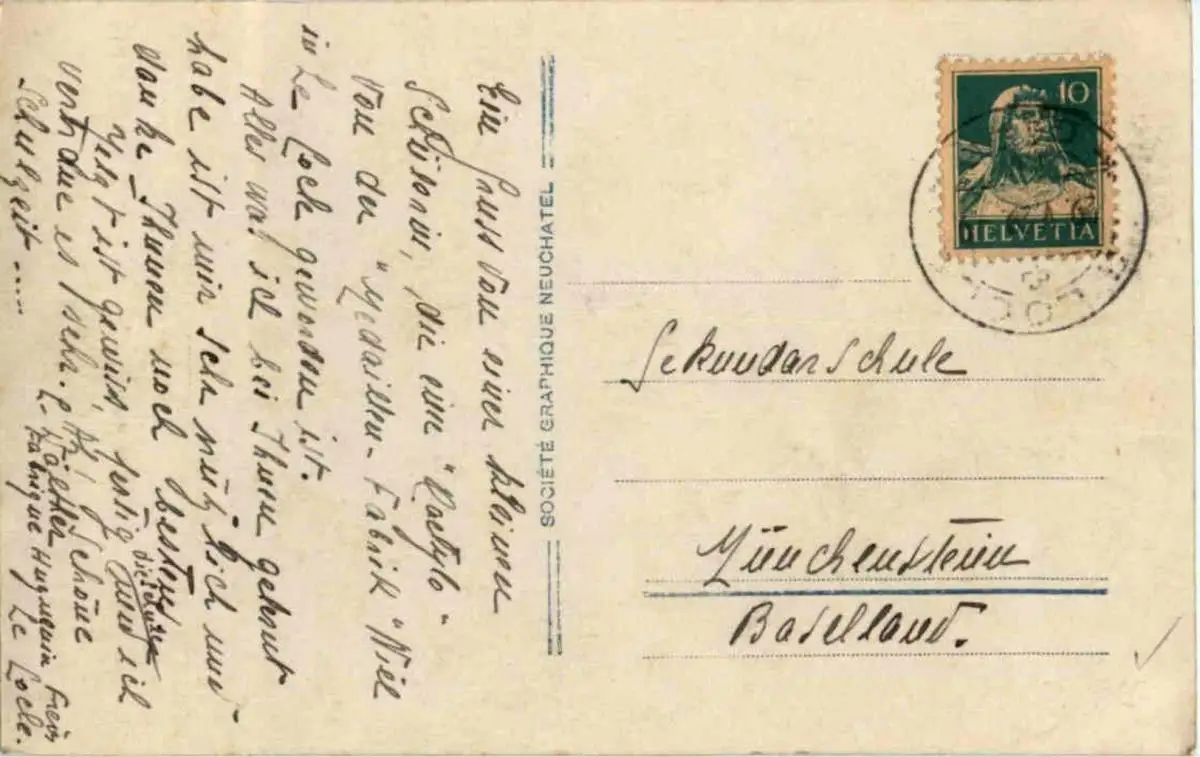 Ein Gruss von einer kleinen
Schülerin, die eine "Dactylo"
von der "Medaillen-Fabrik
in Le Locle geworden ist.
Alles was ich bei Ihnen gelernt
habe ist mir sehr nützlich und
danke Ihnen noch bestens
Jetzt ist gewiss, fertig und ich
die Schule
es sehr. Ah! Schöne
Schulzeit ....
Fabrique Huguenin Frères
Le Locle.
SOCIÉTÉ GRAPHIQUE NEUCHATEL
10
HELVETIA
Sekundarschule
Münchenstein
Baselland.